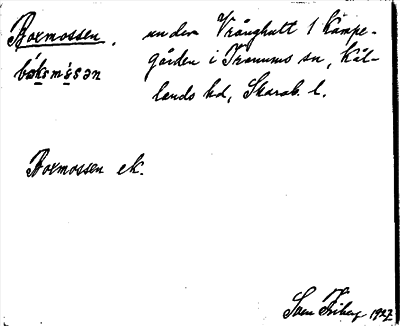 Boxmossen.
bóksmósən
under Vrånghult 1 Kämpe-
gården i Tranums sn, Kål-
lands hd, Skarab. l.
Boxmossen ek.
Sven Friberg 1927